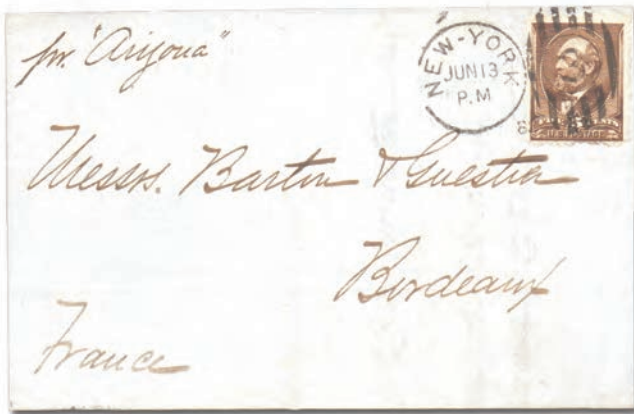 pr. "Arizona"
NEW-YORK
JUN 13
P.M
8
Messrs. Barton & Guestier
Bordeaux
France